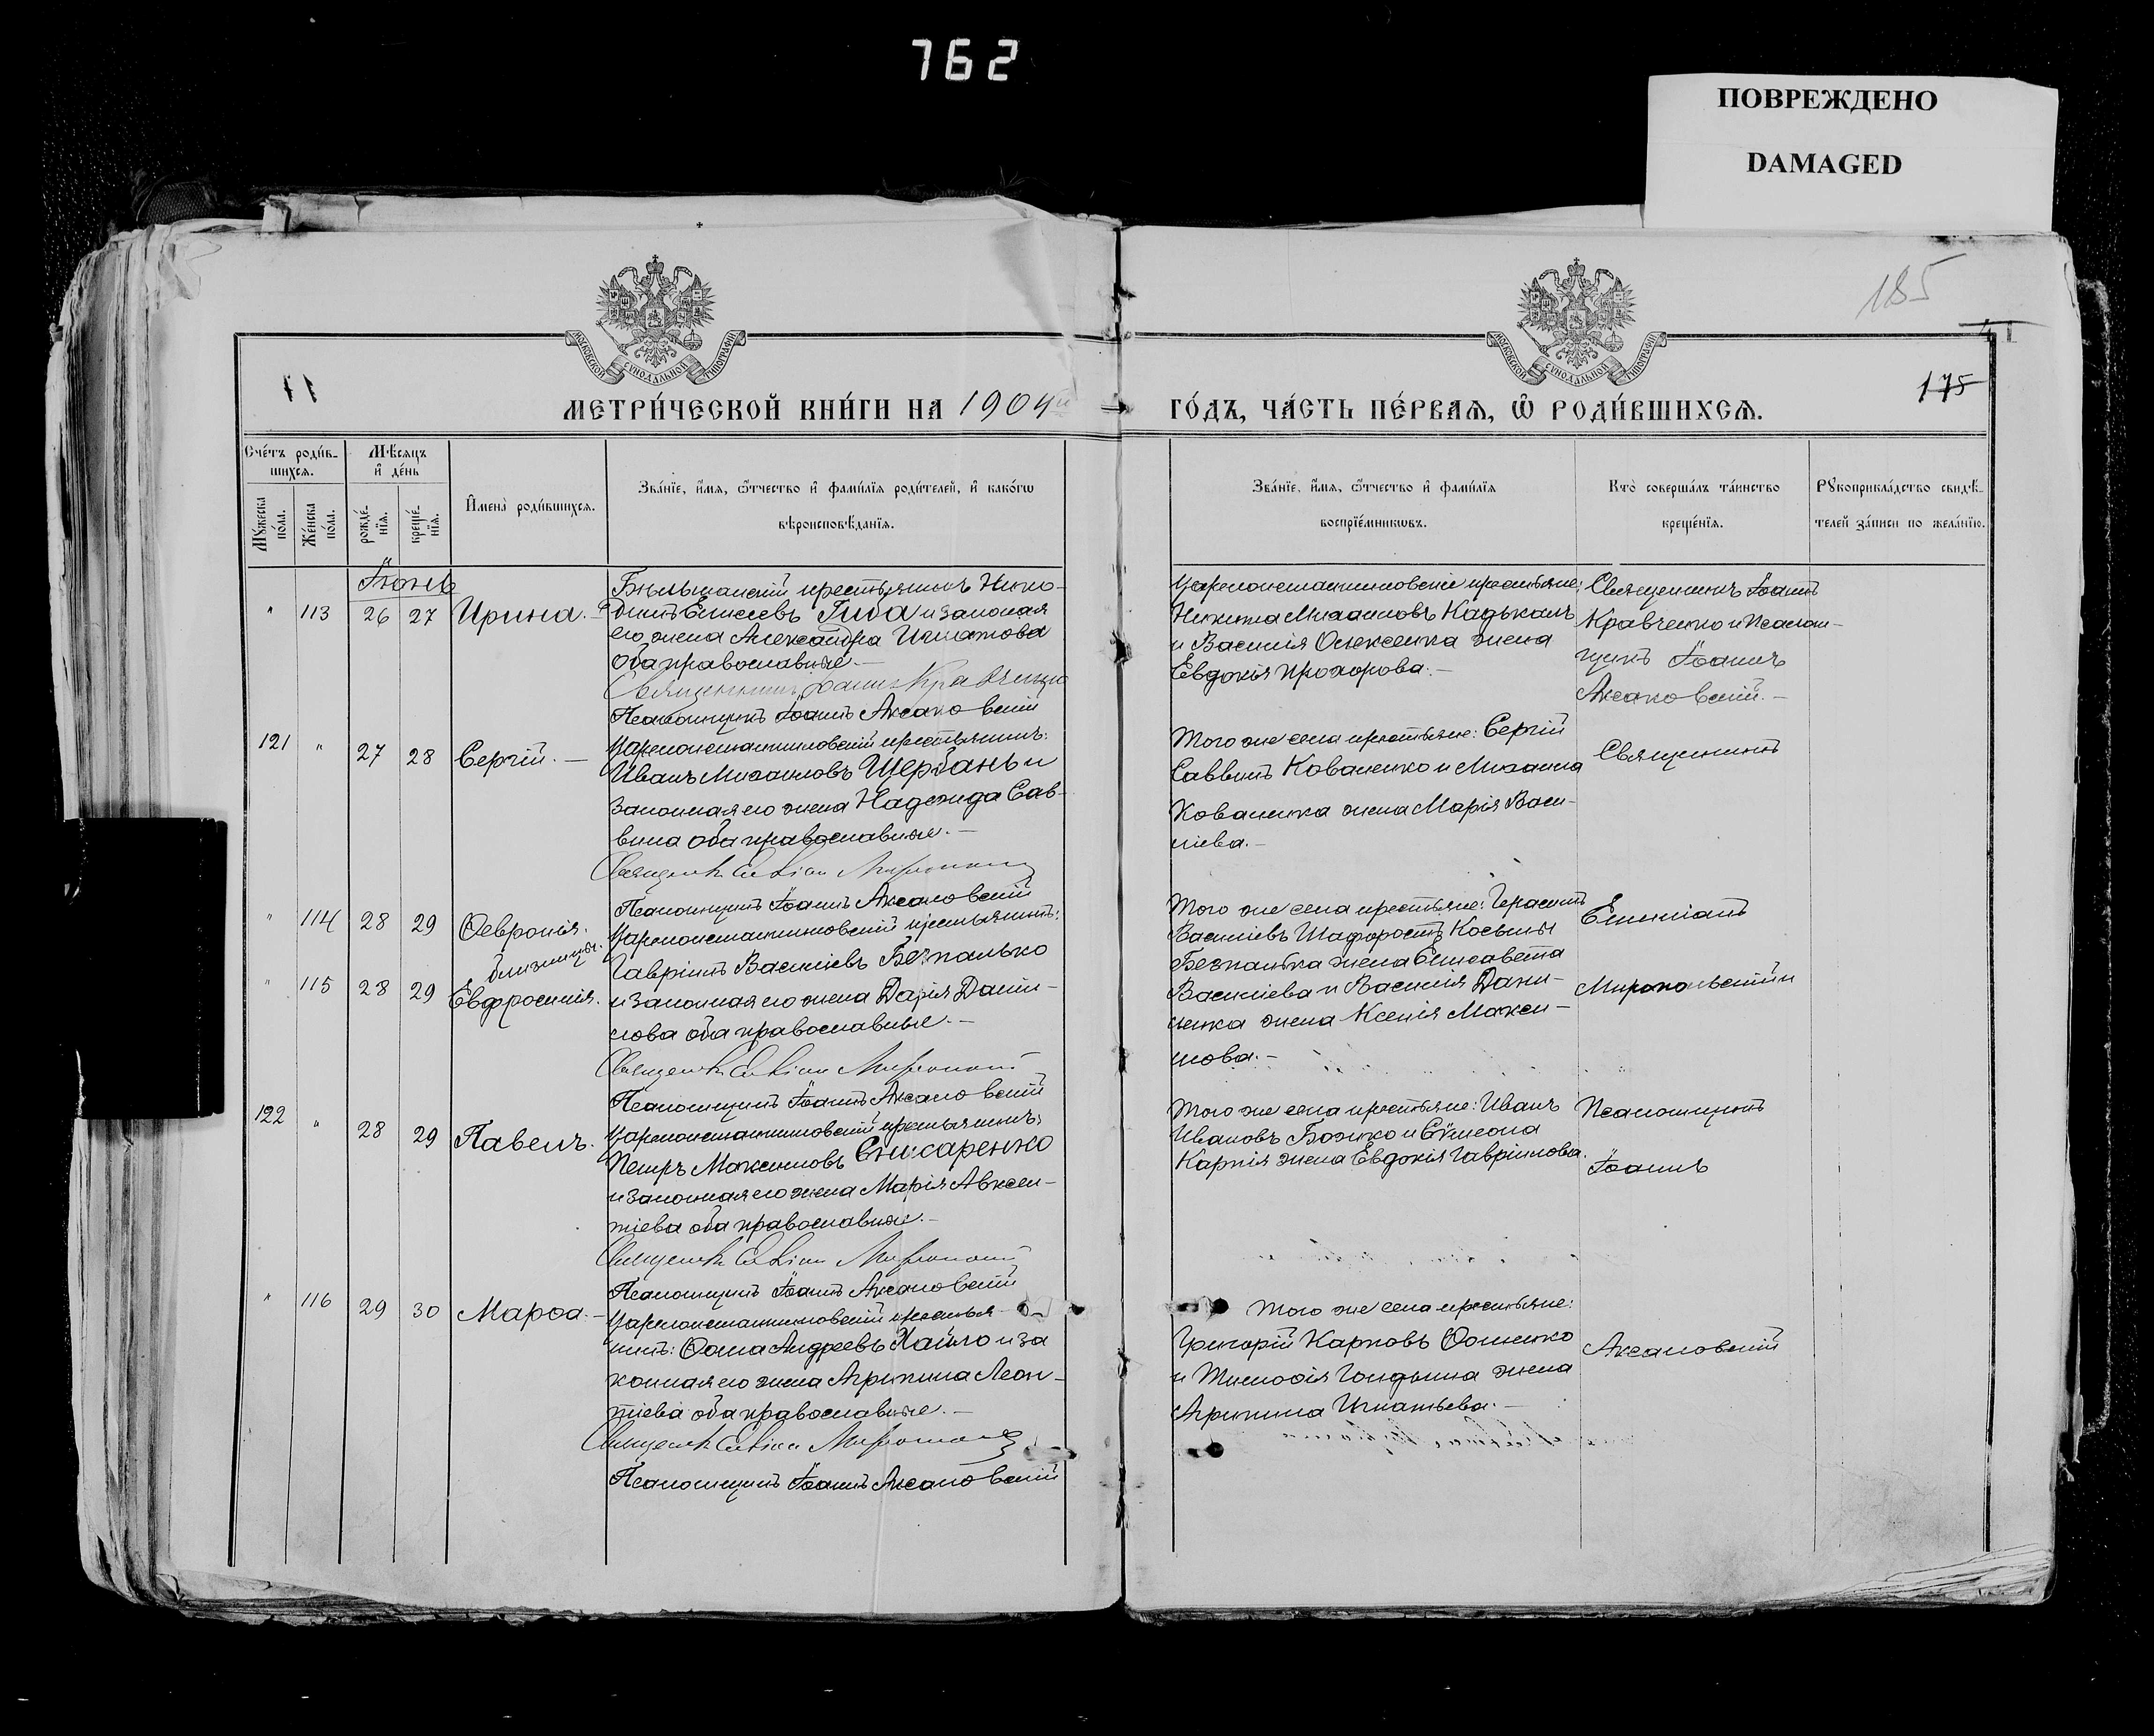 762
ПОВРЕЖДЕНО
DAMAGED
185
41
175
11
МОСКОВСКОЙ СѴНОДАЛЬНОЙ ТИПОГРАФІИ
МОСКОВСКОЙ СѴНОДАЛЬНОЙ ТИПОГРАФІИ
МЕТРИ́ЧЕСКОЙ КНИ́ГИ НА 1904й
ГО́ДЪ, ЧА́СТЬ ПЕ́РВАѦ, Ѿ РОДИ́ВШИХСѦ.
Сче́тъ роди́в-
шихсѧ.
Мѣ́сѧцъ
и҆ де́нь
Мꙋ́жеска по́ла.
Же́нска по́ла.
рожде́-нїѧ.
креще́-нїѧ.
И҆мена̀ роди́вшихсѧ.
Зва́нїе, и҆́мѧ, ѻ҆́тчество и҆ фами́лїѧ роди́телей, и҆ како́гѡ
вѣроисповѣ́данїѧ.
Зва́нїе, и҆́мѧ, ѻ҆́тчество и҆ фами́лїѧ
воспрїе́мникѡвъ.
Кто̀ соверша́лъ та́инство
креще́нїѧ.
Рꙋкоприкла́дство свидѣ́-
телей за́писи по жела́нїю.
Іюнь
" 113 26 27 Ирина.
Бѣльманскій крестьянинъ Нико-
димъ Елисеевъ Гиба и законая
его жена Александра Игнатова
оба православные.—
Священникъ Іоаннъ Кравченко
Псаломщикъ Іоаннъ Аксаковскій
Цареконстантиновскіе крестьяне:
Никита Михаиловъ Кадькаль
и Василія Олексенка жена
Евдокія Прохорова.—
Священникъ Іоаннъ
Кравченко и Псалом-
щикъ Іоаннъ
Аксаковскій.—
121 " 27 28 Сергій.—
Цареконстантиновскій крестьянинъ:
Иванъ Михаиловъ Щербань и
законная его жена Надежда Сав-
вина оба православные.—
Священникъ Миропольскій
Псаломщикъ Іоаннъ Аксаковскій
Того же села крестьяне: Сергій
Саввинъ Коваленко и Михаила
Коваленка жена Марія Васи-
ліева.—
Священникъ
" 114 28 29 Ѳевронія.
близнецы.
" 115 28 29 Евфросинія.
Цареконстантиновскій крестьянинъ:
Гавріилъ Василіевъ Безпалько
и законная его жена Дарія Даніи-
лова оба православные.—
Священникъ Миропольскій
Псаломщикъ Іоаннъ Аксаковскій
Того же села крестьяне: Герасимъ
Василіевъ Шафоростъ, Косьмы
Безпалька жена Елисавета
Василіева и Василія Дани-
ленка жена Ксенія Макси-
мова.—
Емиліанъ
Миропольскій и
122 " 28 29 Павелъ.
Цареконстантиновскій крестьянинъ:
Петръ Максимовъ Снисаренко
и законная его жена Марія Авксен-
тіева оба православные.—
Священникъ Миропольскій
Псаломщикъ Іоаннъ Аксаковскій
Того же села крестьяне: Иванъ
Ивановъ Божко и Сѷмеона
Карпія жена Евдокія Гавріилова.
Псаломщикъ
Іоаннъ
" 116 29 30 Марѳа.—
Цареконстантиновскій крестья-
нинъ: Ѳома Андреевъ Хайло и за
конная его жена Агрипина Леон-
тіева оба православные.—
Священникъ Миропольскій
Псаломщикъ Іоаннъ Аксаковскій
Того же села крестьяне:
Григорій Карповъ Ѳоменко
и Тимофія жена
Агрипина Игнатьева.—
Аксаковскій